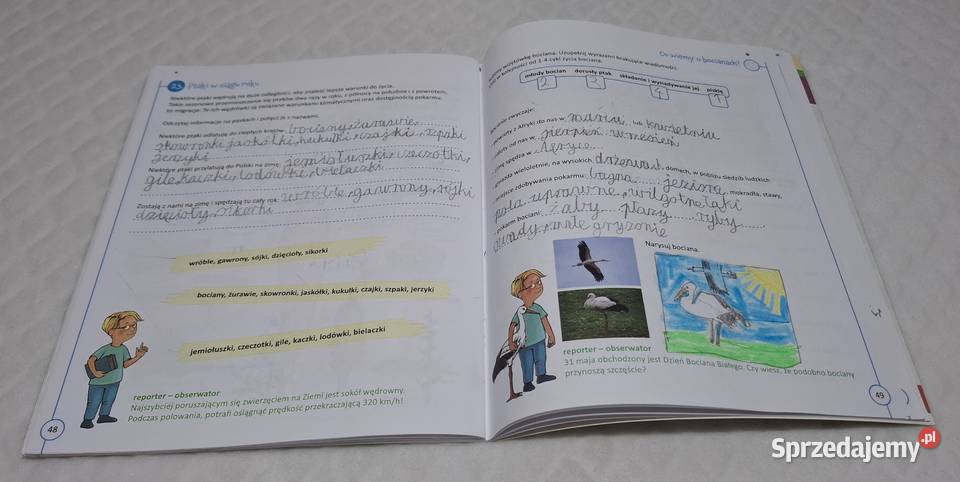 23. Ptaki w ciągu roku
Niektóre ptaki wędrują na duże odległości, aby znaleźć lepsze warunki do życia.
Takie sezonowe przemieszczanie się ptaków dwa razy w roku, z północy na południe i z powrotem,
to migracje. Te ich wędrówki są związane warunkami klimatycznymi oraz dostępnością pokarmu.
Odczytaj informacje na paskach i połącz je z nazwami.
Niektóre ptaki odlatują do ciepłych krajów: bociany, żurawie,
skowronki, jaskółki, kukułki, czajki, szpaki
jerzyki
Niektóre ptaki przylatują do Polski na zimę: jemiołuszki, czeczotki,
gile, kaczki, lodówki, bielaczki
Zostają z nami na zimę i spędzają tu cały rok: wróble, gawrony, sójki
dzięcioły, sikorki
wróble, gawrony, sójki, dzięcioły, sikorki
bociany, żurawie, skowronki, jaskółki, kukułki, czajki, szpaki, jerzyki
jemiołuszki, czeczotki, gile, kaczki, lodówki, bielaczki
reporter – obserwator
Najszybciej poruszającym się zwierzęciem na Ziemi jest sokół wędrowny.
Podczas polowania, potrafi osiągnąć prędkość przekraczającą 320 km/h!
48
Co wiemy o bocianach?
wizytówkę bociana. Uzupełnij wyrazami brakujące wiadomości.
w kolejności od 1-4 cykl życia bociana.
młody bocian dorosły ptak składanie i wysiadywanie jaj pisklę
2 3 4 1
zwyczaje:
z Afryki do nas w marcu lub kwietniu
od nas w sierpień wrzesień
spędza w Afryce
wieloletnie, na wysokich drzewach, domach, w pobliżu siedzib ludzkich
miejsce zdobywania pokarmu: bagna jeziora, mokradła, stawy,
pola uprawne, wilgotne łąki
pokarm bociani: żaby płazy ryby
owady, małe gryzonie
Narysuj bociana.
reporter – obserwator
31 maja obchodzony jest Dzień Bociana Białego. Czy wiesz, że podobno bociany
przynoszą szczęście?
49
Sprzedajemy.pl